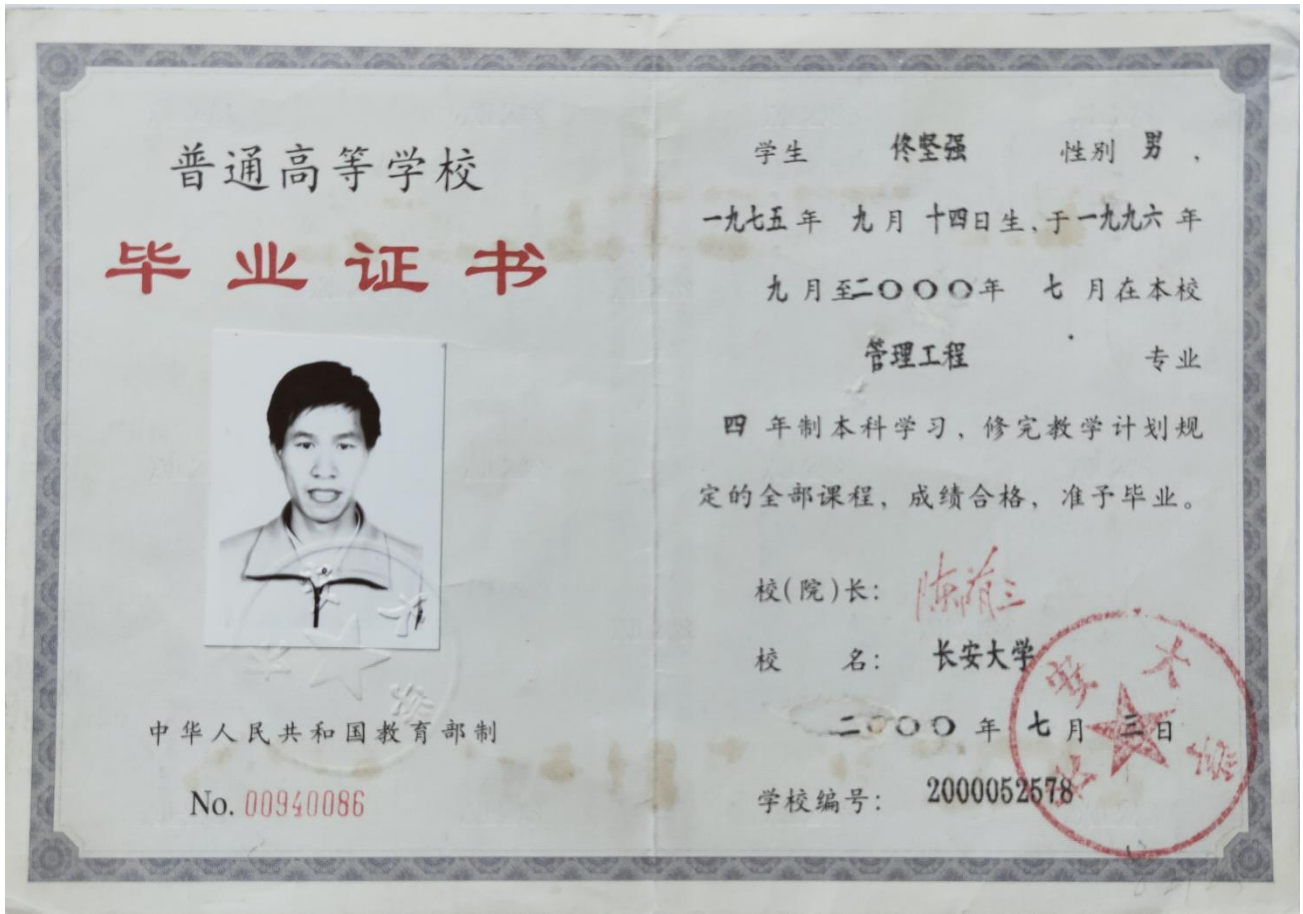 普通高等学校
毕业证书
中华人民共和国教育部制
No. 00940086
学生 佟坚强 性别 男，
一九七五年 九月 十四日生，于一九九六年
九月至二〇〇〇年 七月在本校
管理工程 专业
四年制本科学习，修完教学计划规
定的全部课程，成绩合格，准予毕业。
校(院)长：
校 名：长安大学
二〇〇〇年七月三日
学校编号：2000052578
长安大学